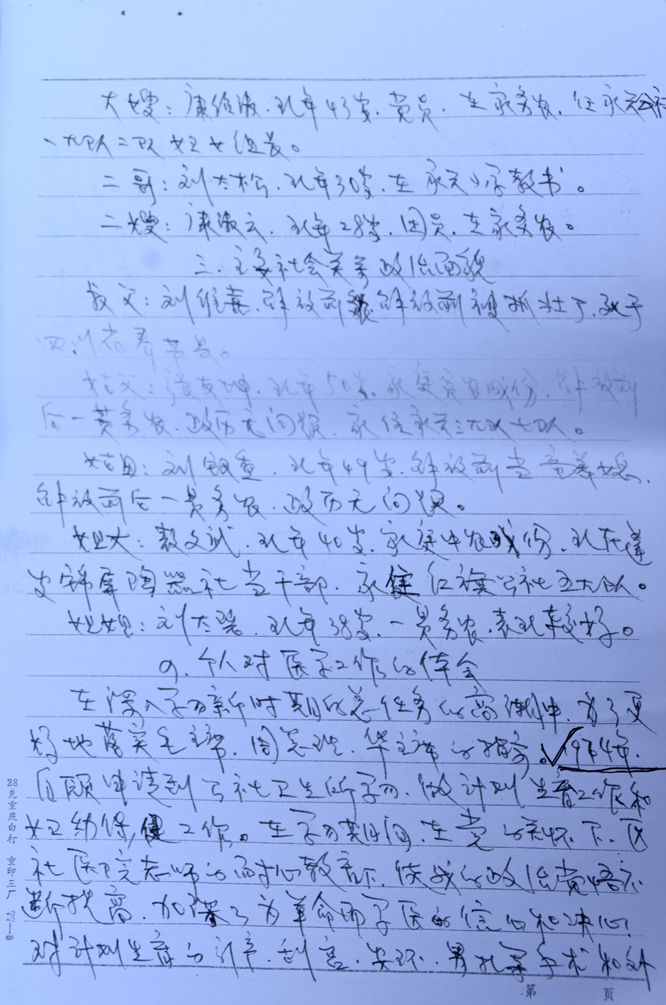 大嫂：康给淑，现年43岁，党员，在家务农，任永兴公社
一大队二队妇卫女组长。
二哥：刘大松，现年30岁，在永兴小学教书。
二嫂：康淑云，现年28岁，团员，在家务农。
三、主要社会关系政治面貌
叔父：刘维熹，解放前解放前被抓壮丁，死于
四川省
姑父：现年5岁，家庭贫农成份，解放前
后一贯务农，政历无问题，家住永兴三大队七队。
姑母：刘现年49岁，解放前当童养媳，
解放前后一贯务农，政历无问题。
姐夫：敖文武，现年40岁，家庭中农成份，现在
陶器社当干部，家住红旗公社五大队。
姐姐：刘大碧，现年38岁，一贯务农，表现较好。
四、个人对医疗工作的体会
在深入学习新时期的总任务的高潮中，为了更
好地落实毛主席、周总理、华主席的指示。√1974年，
自愿申请到公社卫生所学习，做计划生育工作和
妇卫幼保健工作。在学习期间，在党的关怀下，区
社医院老师的耐心教育下，使我的政治觉悟不
断提高，加深了为革命而学医的信心和决心，
对计划生育的引产、刮宫、安环、男扎等手术和外
第 页
28克重庆白打 重印三厂